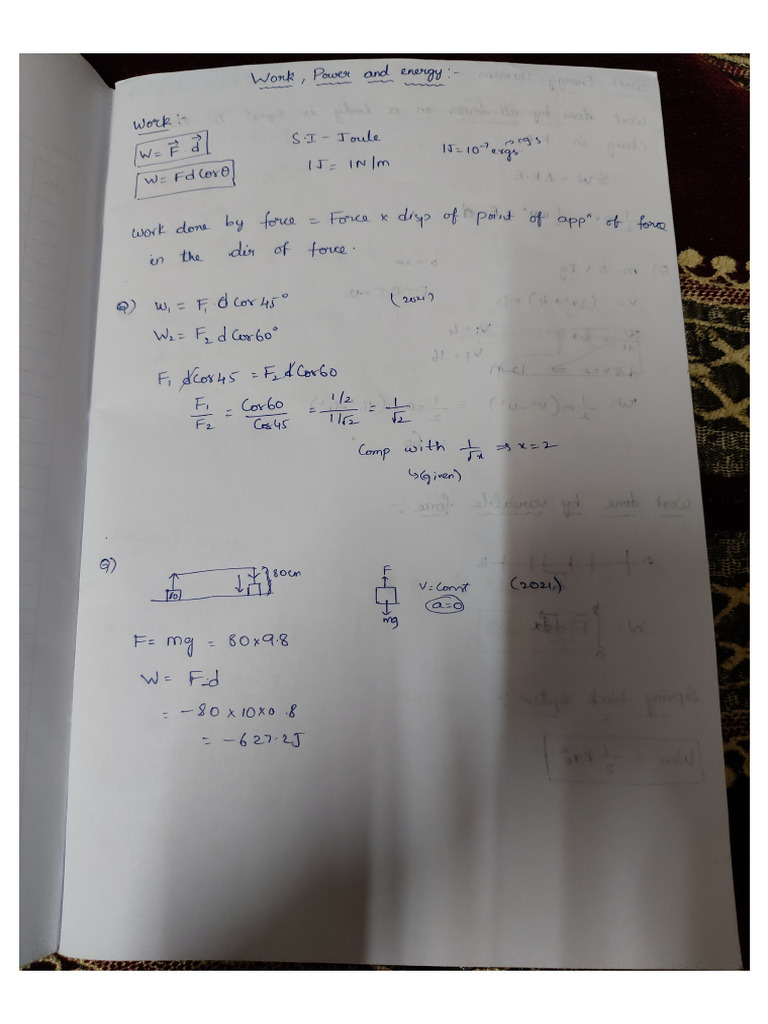 Work, Power and energy:-
Work:-
W = F⃗ . d⃗
W = Fd Cosθ
S.I - Joule
1J = 1N/m
1J = 10⁻⁷ ergs
Work done by force = Force x disp of point of appⁿ of force
in the dir of force.
Q) W₁ = F₁ d Cos 45° (2021)
W₂ = F₂ d Cos 60°
F₁ d Cos 45 = F₂ d Cos 60
F₁/F₂ = Cos 60/Cos 45 = 1/2/1/√2 = 1/√2
Comp with 1/√x ⇒ x = 2
↳ (given)
Q)
80
80cm
F
mg
V = Const (2021)
a=0
F = mg = 80 x 9.8
W = F.d
= -80 x 10 x 0.8
= -627.2J